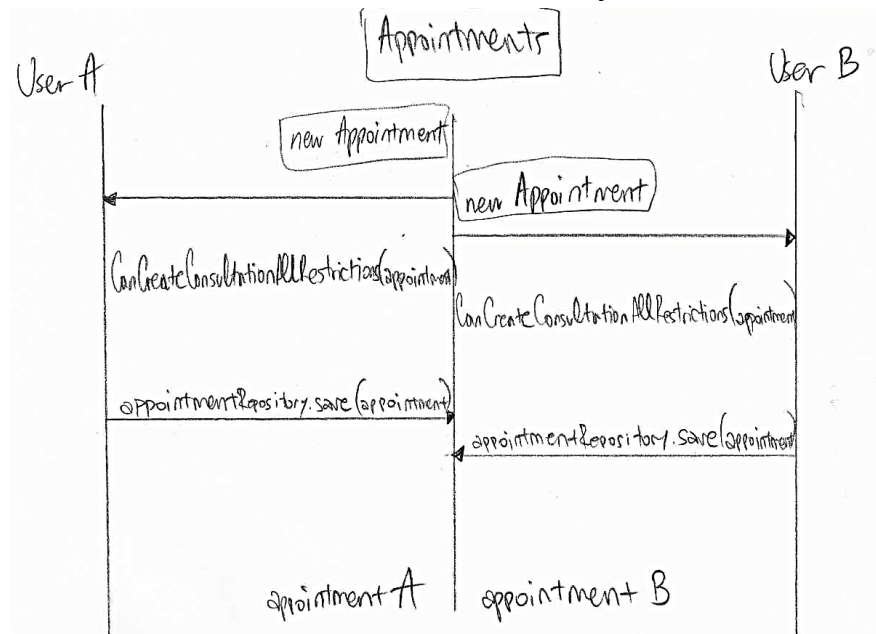 Appointments
User A
User B
new Appointment
new Appointment
CanCreateConsultationAllRestrictions(appointment)
CanCreateConsultationAllRestrictions(appointment
appointmentRepository.save(appointment)
appointmentRepository.save(appointment)
appointment A
appointment B